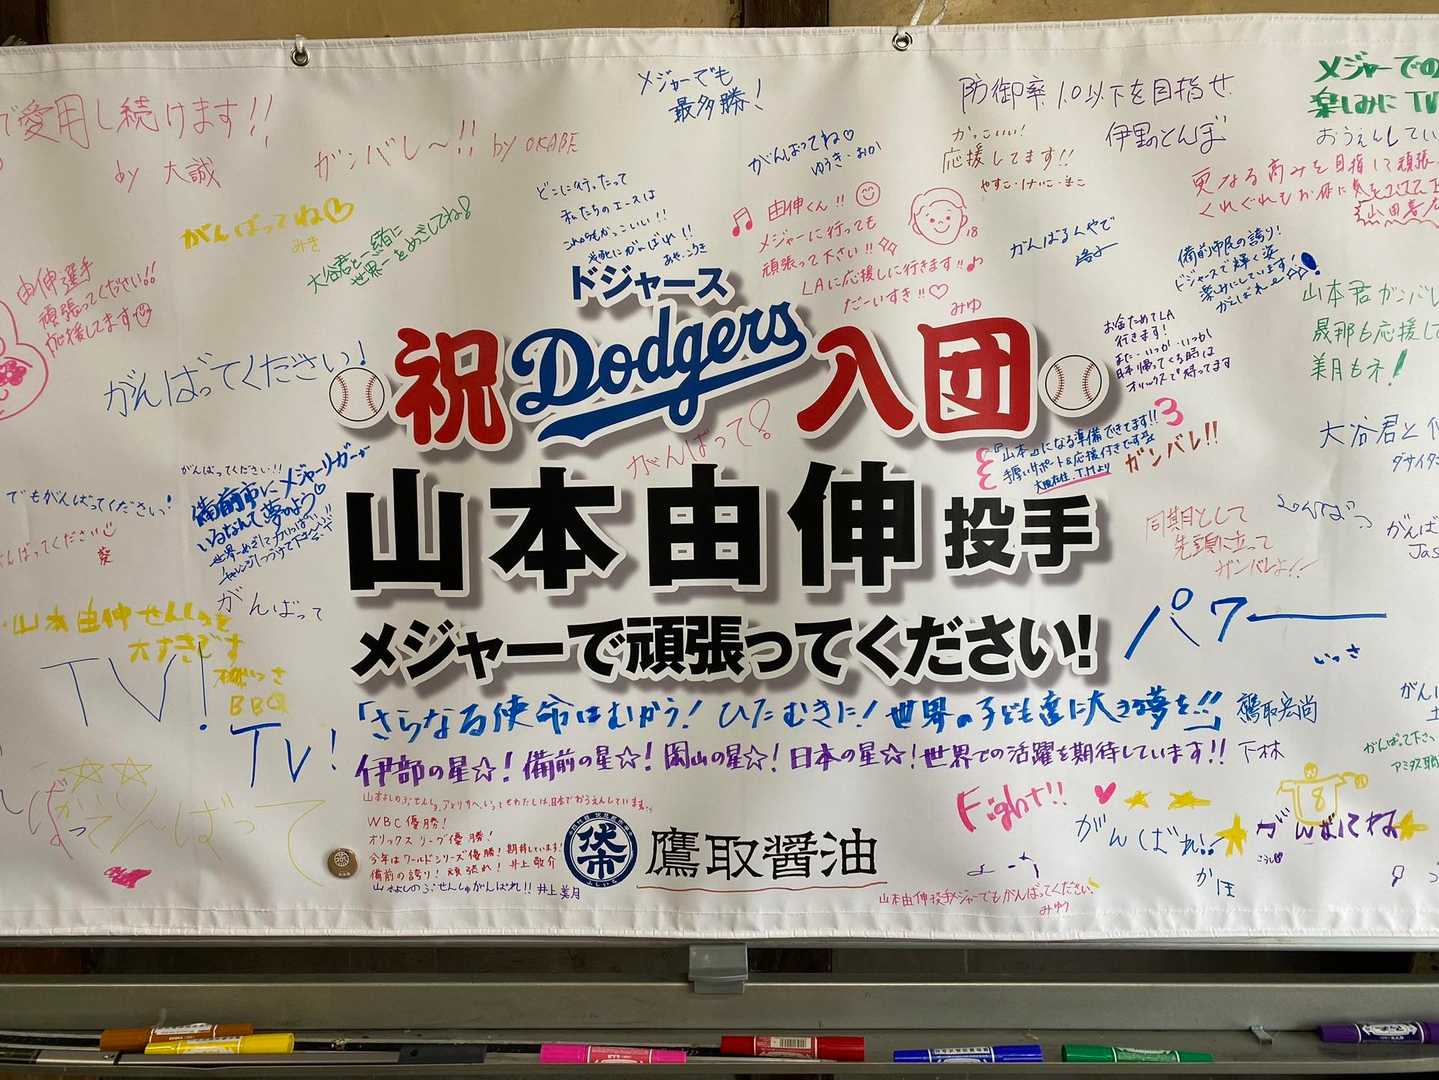 で愛用し続けます!!
by 大誠
ガンバレ〜!! by OKABE
メジャーでも
最多勝!
防御率1.0以下を目指せ
伊里のとんぼ
メジャーでの
楽しみに TV
おうえんしてい
がんばってね♡
ゆうき・あか
かっこいい!
応援してます!!
やすこ・けいこ・まこ
更なる高みを目指して頑張
がんばってね♡
みき
大谷君と一緒に
世界一をめざしてね!
どこに行ったって
私たちのエースは
これからもかっこいい!!
がんばれ!!
♫ 由伸くん!! ☺
メジャーに行っても
頑張って下さい!!
LAに応援しに行きます!!♪
だーいすき!!♡
みゆ
18
がんばるんやで
備前市民の誇り!
ドジャースで輝く姿
楽しみにしています!
がんばれー
由伸選手
頑張ってください!!
応援してます☺
山本君ガンバレ
晟那も応援して
美月もネ!
お金ためてLA
行きます!
また・いつか・いつか
日本に帰ってくる時は
オリックスで待ってます
ドジャース
祝 Dodgers 入団
がんばってください!
がんばって!
『山本』になる準備できてます!!
手厚いサポート&応援付きです
大阪在住 T.Mより
ガンバレ!!
大谷君と
山本由伸 投手
がんばってください!!
備前市にメジャーリーガーが
いるなんて夢のよう♡
でもがんばってくださいっ!
がんばってください
葵
がんばって
同期として
先頭に立って
ガンバレよ!!
がんば
Jas
メジャーで頑張ってください!
パワー
いっさ
山本由伸せんしゅ
大すきです
TV!
BBQ
TV!
「さらなる使命はむかう! ひたむきに! 世界の子ども達に大きな夢を!!」 鷹取宏尚
伊部の星☆! 備前の星☆! 岡山の星☆! 日本の星☆! 世界での活躍を期待しています!! 下林
がんばって下さい
がんばって
山本よしのぶせんしゅ、アメリカへいってもわたしは、日本でおうえんしています。
WBC優勝!
オリックス リーグ優勝!
今年はワールドシリーズ優勝! 期待しています!
備前の誇り! 頑張れ! 井上敬介
山本よしのぶせんしゅがんばれ!! 井上美月
伏市
鷹取醤油
Fight!! ♥
がんばれ!!
かほ
8
がんばってね
山本由伸投手メジャーでもがんばってください。
みゆう